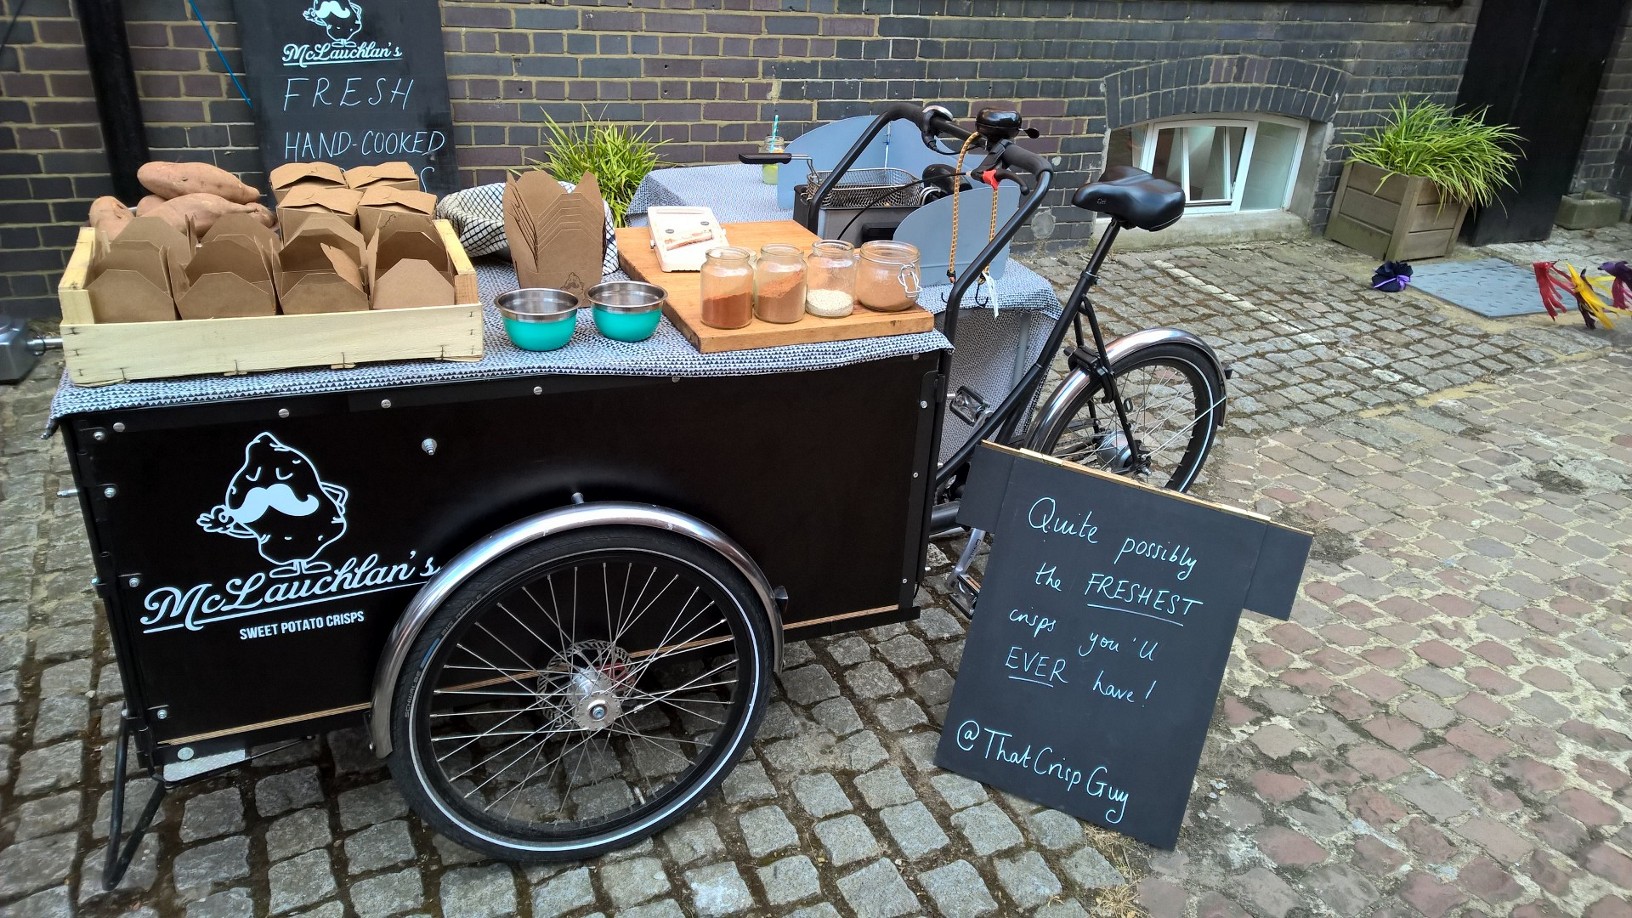 McLauchlan's
FRESH
HAND-COOKED
McLauchlan's
SWEET POTATO CRISPS
Quite possibly
the FRESHEST
crisps you'll
EVER have!
@ThatCrispGuy